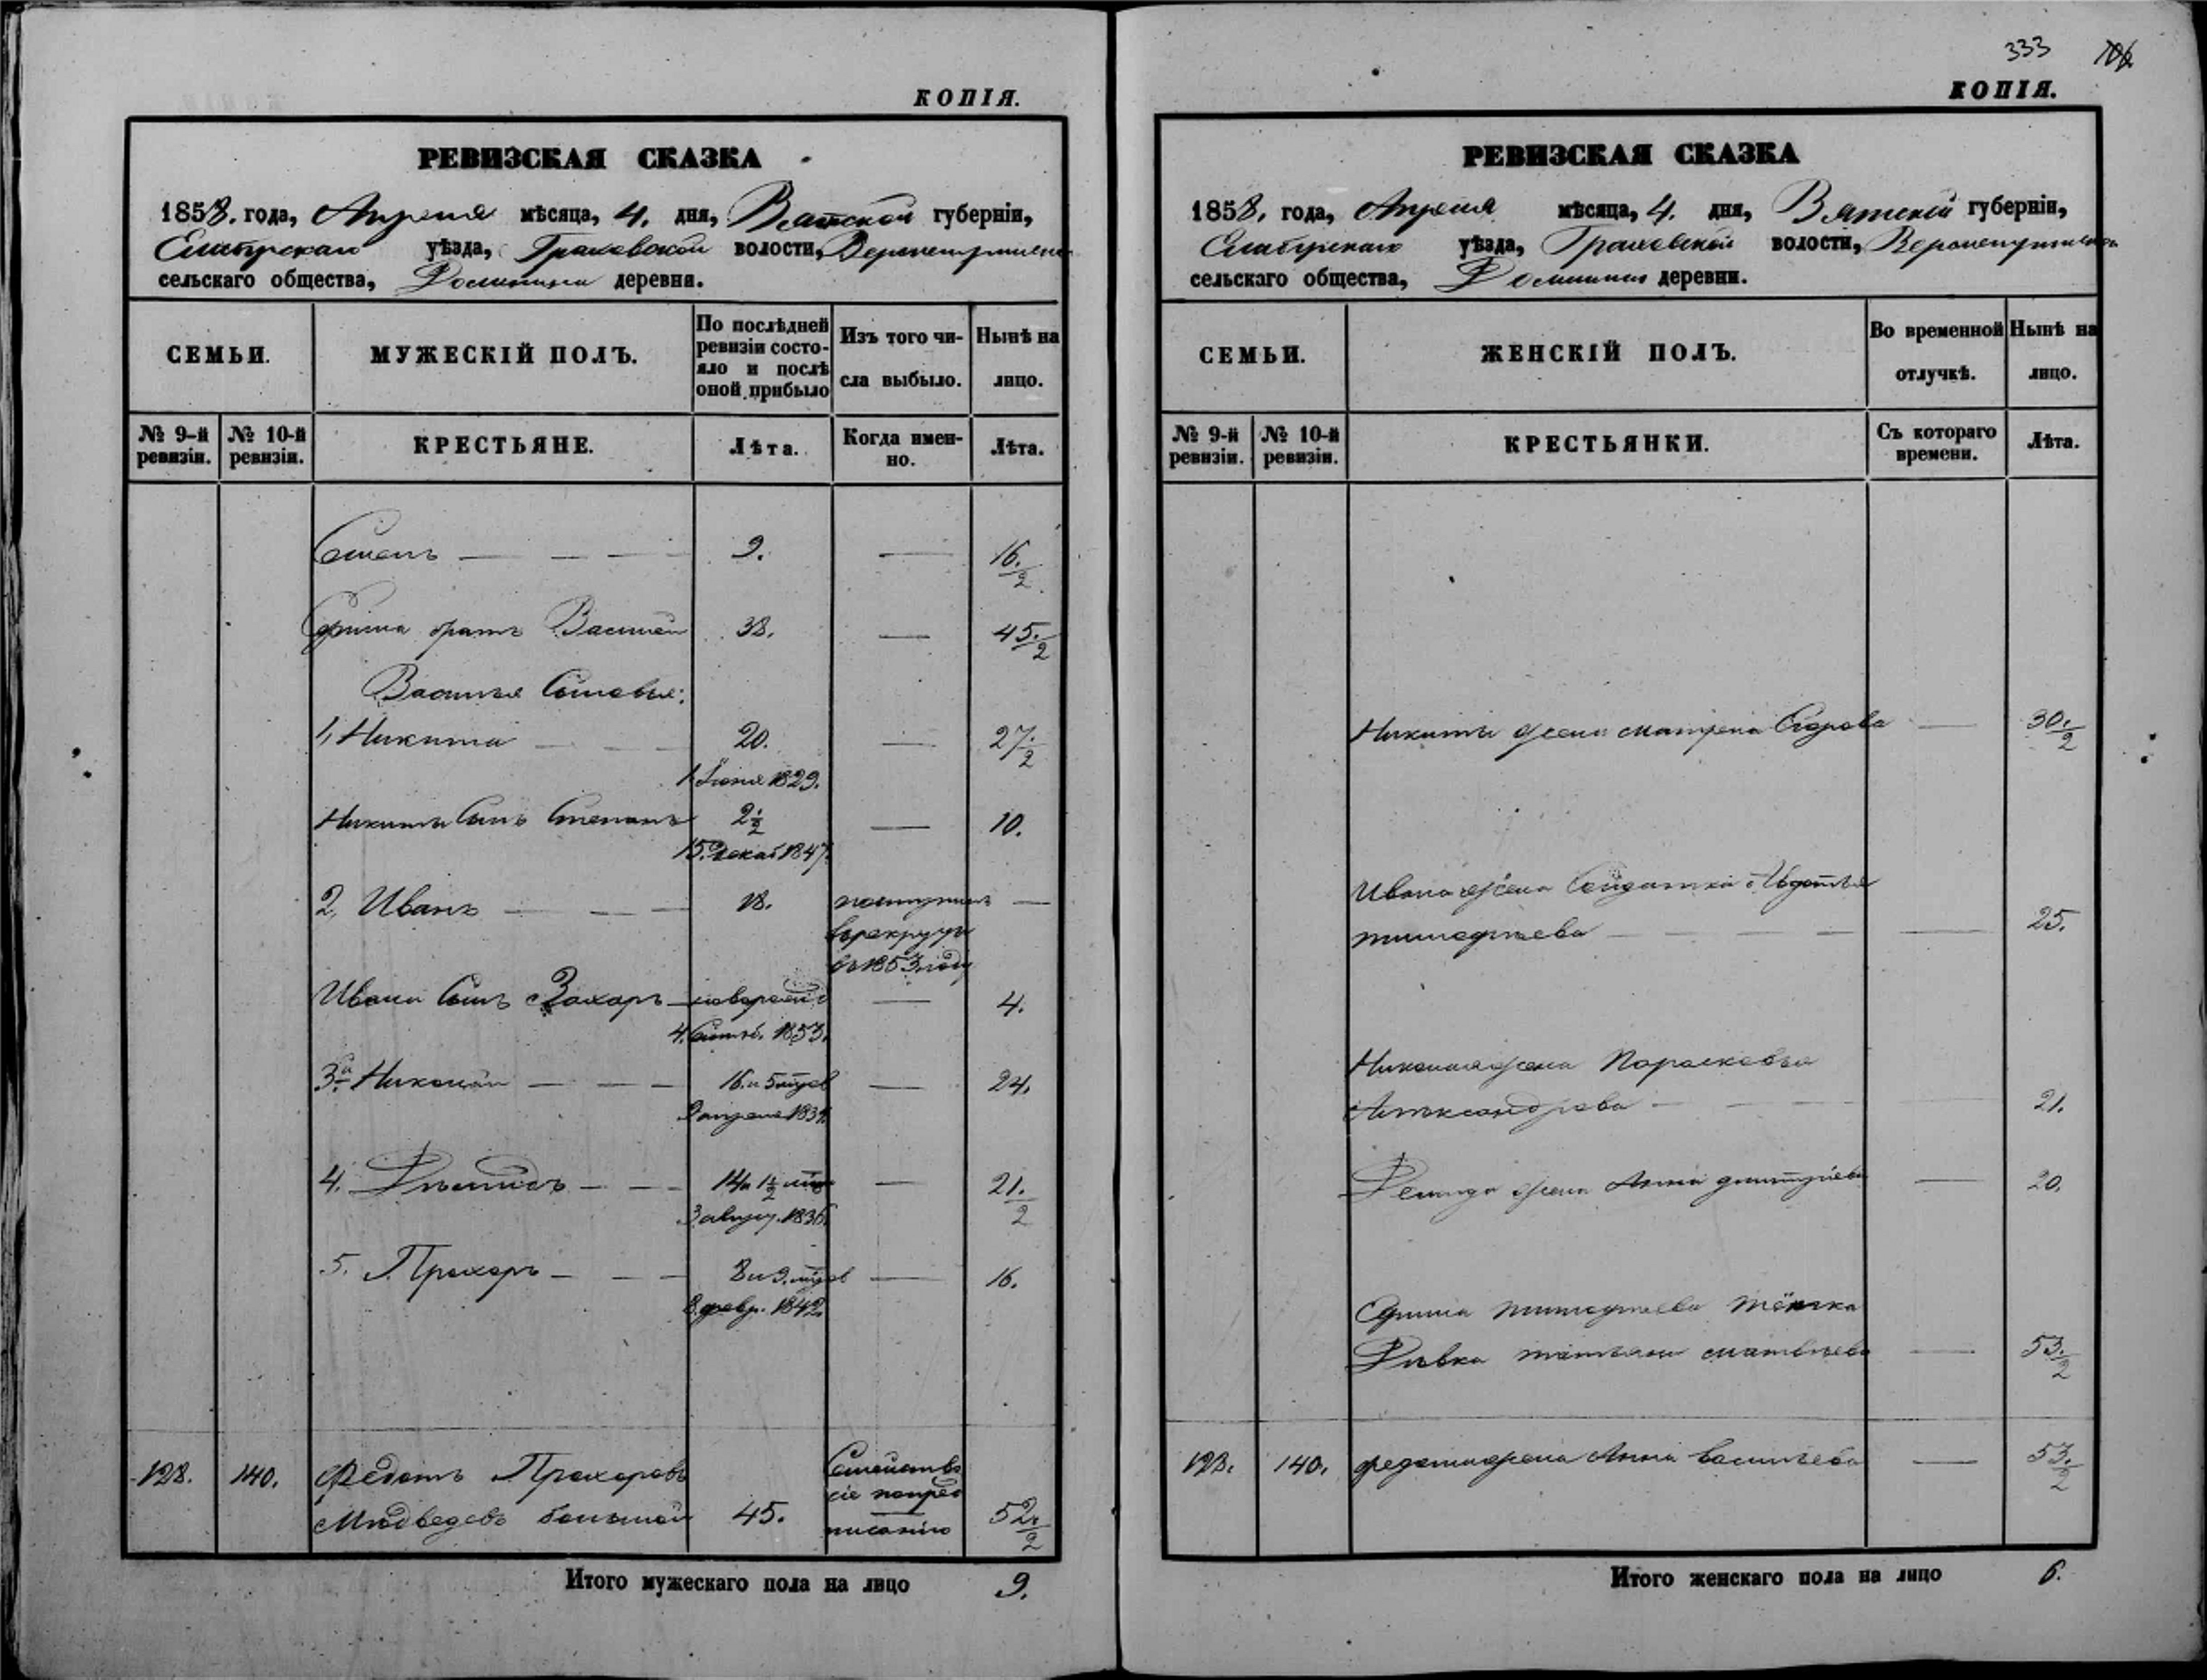 КОПІЯ.
РЕВИЗСКАЯ СКАЗКА
1858. года, Апреля мѣсяца, 4. дня, Вятской губерніи,
Елабугскаго уѣзда, Граховской волости,
сельскаго общества, деревни.
СЕМЬИ.
МУЖЕСКІЙ ПОЛЪ.
По послѣдней ревизіи состо-
яло и послѣ оной прибыло
Изъ того чи-
сла выбыло.
Нынѣ на
лицо.
№ 9-й ревизіи.
№ 10-й ревизіи.
КРЕСТЬЯНЕ.
Лѣта.
Когда имен-
но.
Лѣта.
Семенъ — — — 9. — 16.½
Ефима братъ Василей 38. — 45.½
Василья Сыновья:
1, Никита — — 20. — 27.½
1 Іюня 1829.
Никиты Сынъ Степанъ 2½ — 10.
15 Декаб 1847.
2, Иванъ — — — 18. поступилъ —
в рекруты
въ 1853 году
Ивана Сынъ Захаръ — новорожд — 4.
4. Сентб. 1853.
3й Николай — — — 16 и 5 мцов — 24.
9 апреля 183
4. Демидъ — — 14 и 1½ мцо — 21.½
3 август. 183
5. Прохоръ — — — 8 и 9. мцов — 16.
8 февр. 1842.
128. 140. Федотъ Прохоровъ Семейство
сіе
Медведевъ большой 45. 52.½
Итого мужескаго пола на лицо 9.
333 106
КОПІЯ.
РЕВИЗСКАЯ СКАЗКА
1858. года, Апреля мѣсяца, 4. дня, Вятской губерніи,
Елабугскаго уѣзда, Граховской волости,
сельскаго общества, деревни.
СЕМЬИ.
ЖЕНСКІЙ ПОЛЪ.
Во временной
отлучкѣ.
Нынѣ на
лицо.
№ 9-й ревизіи.
№ 10-й ревизіи.
КРЕСТЬЯНКИ.
Съ котораго
времени.
Лѣта.
Никиты жена Матрена Егорова — 30.½
Ивана жена Солдатка Авдотья
Тимофеева — — — — — 25.
Николая жена Парасковья
Александрова — — — 21.
Демида жена Анна Дмитріева — 20.
Ефима Тимофеева тётка
Девка Татьяна Матвеева — 53.½
128. 140. Федота жена Анна Васильева — 53.½
Итого женскаго пола на лицо 6.